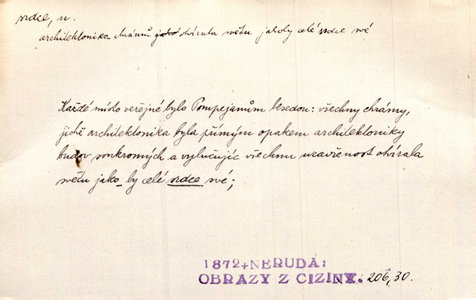 srdce, n.
architektonika chrámů otvírala světu jakoby celé srdce své
Každé místo veřejné bylo Pompejanům besedou: všechny chrámy,
jichž architektonika byla přímým opakem architektoniky
budov soukromých a vylučujíc všechnu uzavřenost otvírala
světu jako by celé srdce své;
1872+NERUDA:
OBRAZY Z CIZINY. 206,30.